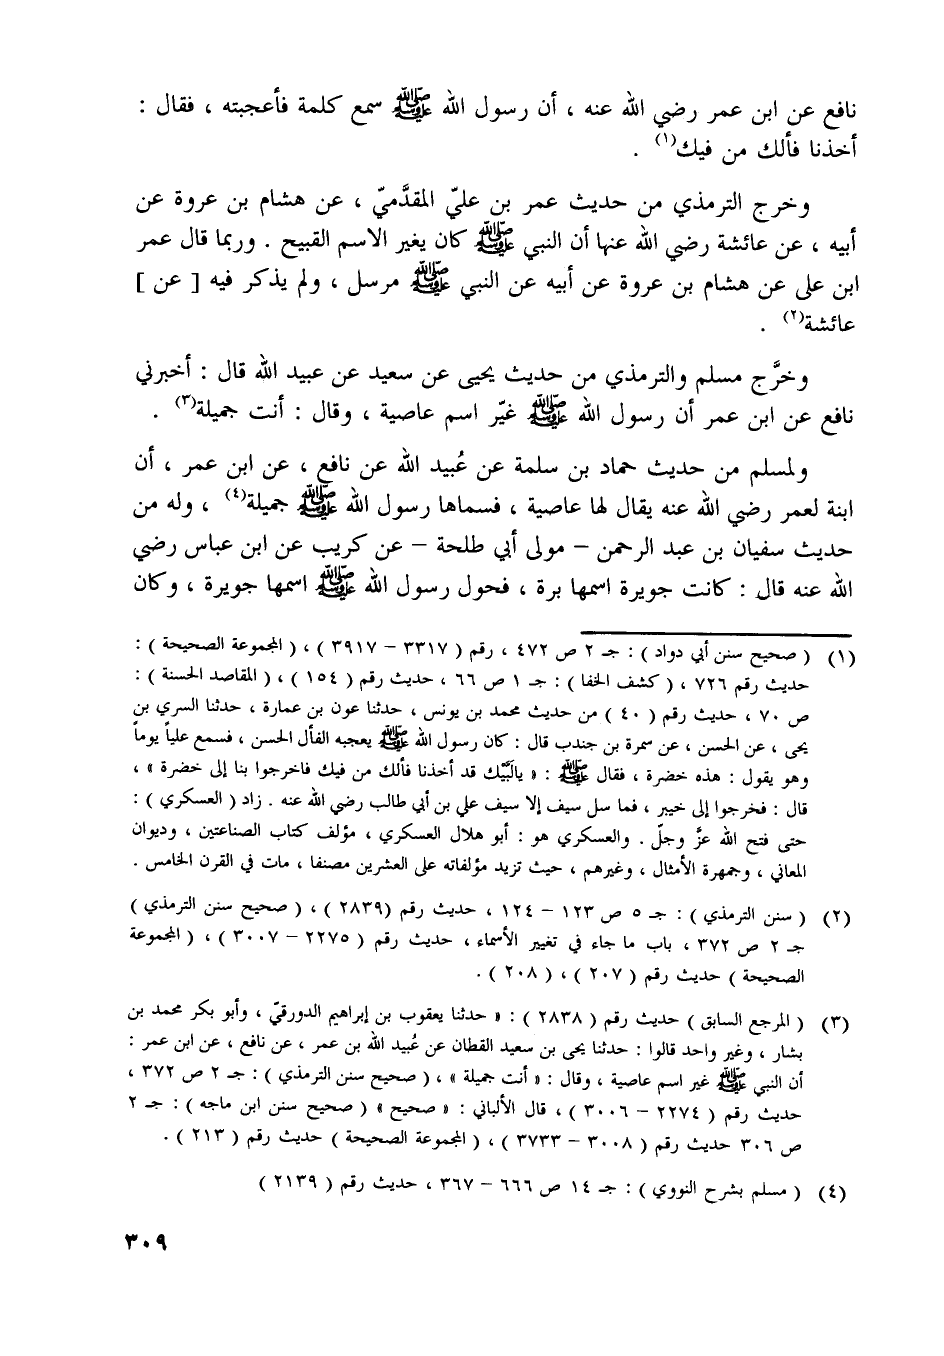 نافع عن ابن عمر رضي الله عنه ، أن رسول الله ﷺ سمع كلمة فأعجبته ، فقال :
أخذنا فألك من فيك(١) .
وخرج الترمذي من حديث عمر بن عليّ المقدَّميّ ، عن هشام بن عروة عن
أبيه ، عن عائشة رضي الله عنها أن النبي ﷺ كان يغير الاسم القبيح . وربما قال عمر
ابن على عن هشام بن عروة عن أبيه عن النبي ﷺ مرسل ، ولم يذكر فيه [ عن ]
عائشة(٢) .
وخرَّج مسلم والترمذي من حديث يحيى عن سعيد عن عبيد الله قال : أخبرني
نافع عن ابن عمر أن رسول الله ﷺ غيّر اسم عاصية ، وقال : أنت جميلة(٣) .
ولمسلم من حديث حماد بن سلمة عن عُبيد الله عن نافع ، عن ابن عمر ، أن
ابنة لعمر رضي الله عنه يقال لها عاصية ، فسماها رسول الله ﷺ جميلة(٤) ، وله من
حديث سفيان بن عبد الرحمن – مولى أبي طلحة – عن كريب عن ابن عباس رضي
الله عنه قال : كانت جويرة اسمها برة ، فحول رسول الله ﷺ اسمها جويرة ، وكان
(١) ( صحيح سنن أبي دواد ) : جـ ٢ ص ٤٧٢ ، رقم ( ٣٣١٧ – ٣٩١٧ ) ، ( المجموعة الصحيحة ) :
حديث رقم ٧٢٦ ، ( كشف الخفا ) : جـ ١ ص ٦٦ ، حديث رقم ( ١٥٤ ) ، ( المقاصد الحسنة ) :
ص ٧٠ ، حديث رقم ( ٤٠ ) من حديث محمد بن يونس ، حدثنا عون بن عمارة ، حدثنا السري بن
يحى ، عن الحسن ، عن سمرة بن جندب قال : كان رسول الله ﷺ يعجبه الفأل الحسن ، فسمع علياً يوماً
وهو يقول : هذه خضرة ، فقال ﷺ : « يالَبَّيك قد أخذنا فألك من فيك فاخرجوا بنا إلى خضرة » ،
قال : فخرجوا إلى خيبر ، فما سل سيف إلا سيف علي بن أبي طالب رضي الله عنه . زاد ( العسكري ) :
حتى فتح الله عزَّ وجلّ . والعسكري هو : أبو هلال العسكري ، مؤلف كتاب الصناعتين ، وديوان
المعاني ، وجمهرة الأمثال ، وغيرهم ، حيث تزيد مؤلفاته على العشرين مصنفا ، مات في القرن الخامس .
(٢) ( سنن الترمذي ) : جـ ٥ ص ١٢٣ – ١٢٤ ، حديث رقم (٢٨٣٩ ) ، ( صحيح سنن الترمذي )
جـ ٢ ص ٣٧٢ ، باب ما جاء في تغيير الأسماء ، حديث رقم ( ٢٢٧٥ – ٣٠٠٧ ) ، ( المجموعة
الصحيحة ) حديث رقم ( ٢٠٧ ) ، ( ٢٠٨ ) .
(٣) ( المرجع السابق ) حديث رقم ( ٢٨٣٨ ) : « حدثنا يعقوب بن إبراهيم الدورقيّ ، وأبو بكر محمد بن
بشار ، وغير واحد قالوا : حدثنا يحى بن سعيد القطان عن عُبيد الله بن عمر ، عن نافع ، عن ابن عمر :
أن النبي ﷺ غير اسم عاصية ، وقال : « أنت جميلة » ، ( صحيح سنن الترمذي ) : جـ ٢ ص ٣٧٢ ،
حديث رقم ( ٢٢٧٤ – ٣٠٠٦ ) ، قال الألباني : « صحيح » ( صحيح سنن ابن ماجه ) : جـ ٢
ص ٣٠٦ حديث رقم ( ٣٠٠٨ – ٣٧٣٣ ) ، ( المجموعة الصحيحة ) حديث رقم ( ٢١٣ ) .
(٤) ( مسلم بشرح النووي ) : جـ ١٤ ص ٦٦٦ – ٣٦٧ ، حديث رقم ( ٢١٣٩ )
٣٠٩